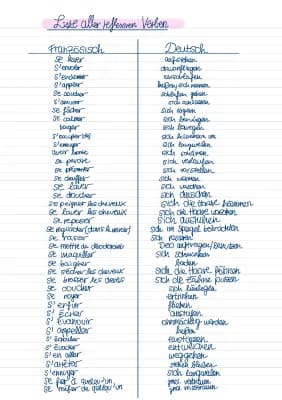 Liste aller reflexiven Verben
Französisch Deutsch
se lever aufstehen
s'envoler
s'endormir einschlafen
s'appeler
se coucher schlafen gehen
s'amuser sich amüsieren
se fâcher sich ärgern
se calmer sich beruhigen
bouger sich bewegen
s'occuper de sich kümmern um
s'ennuyer sich langweilen
avoir honte sich schämen
se perdre sich verlaufen
se présenter sich vorstellen
sich wärmen
se laver sich waschen
se doucher sich duschen
se peigner les cheveux sich die Haare kämmen
se laver les cheveux sich die Haare waschen
se reposer sich ausruhen
se regarder (dans le miroir) sich im Spiegel betrachten
se raser sich rasieren
se mettre du déodorant Deo auftragen/benutzen
se maquiller sich schminken
se baigner baden
se sécher les cheveux sich die Haare föhnen
se brosser les dents sich die Zähne putzen
se coucher sich hinlegen
se noyer ertrinken
s'enfuir fliehen
ausrufen
s'évanouir ohnmächtig werden
s'appeller heißen
s'évader entwischen
s'en aller weggehen
s'arrêter
s'ennuyer sich langweilen
se fier à quelqu'un
se méfier de quelqu'un jmd. misstrauen